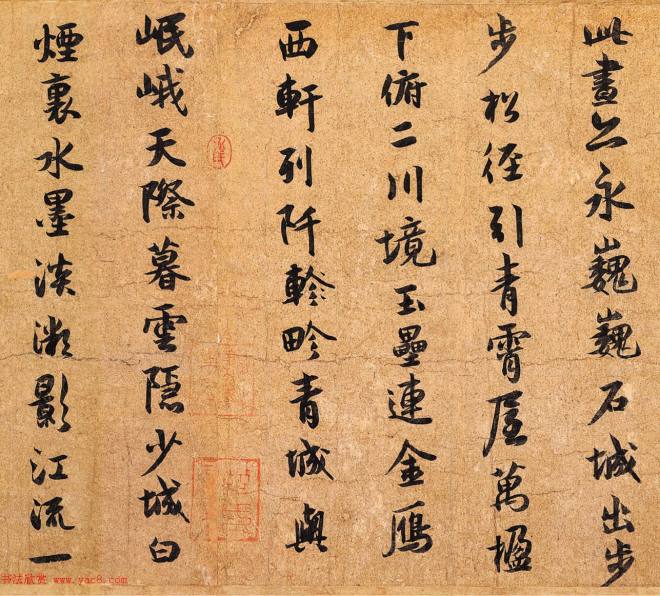 此晝永巍巍石城出步
步松徑引青霄屋萬楹
下俯二川境玉壘連金鴈
西軒列阡軫畛青城與
岷峨天際暮雲隱少城白
煙裏水墨淡影江流一
书法欣赏 www.yac8.com